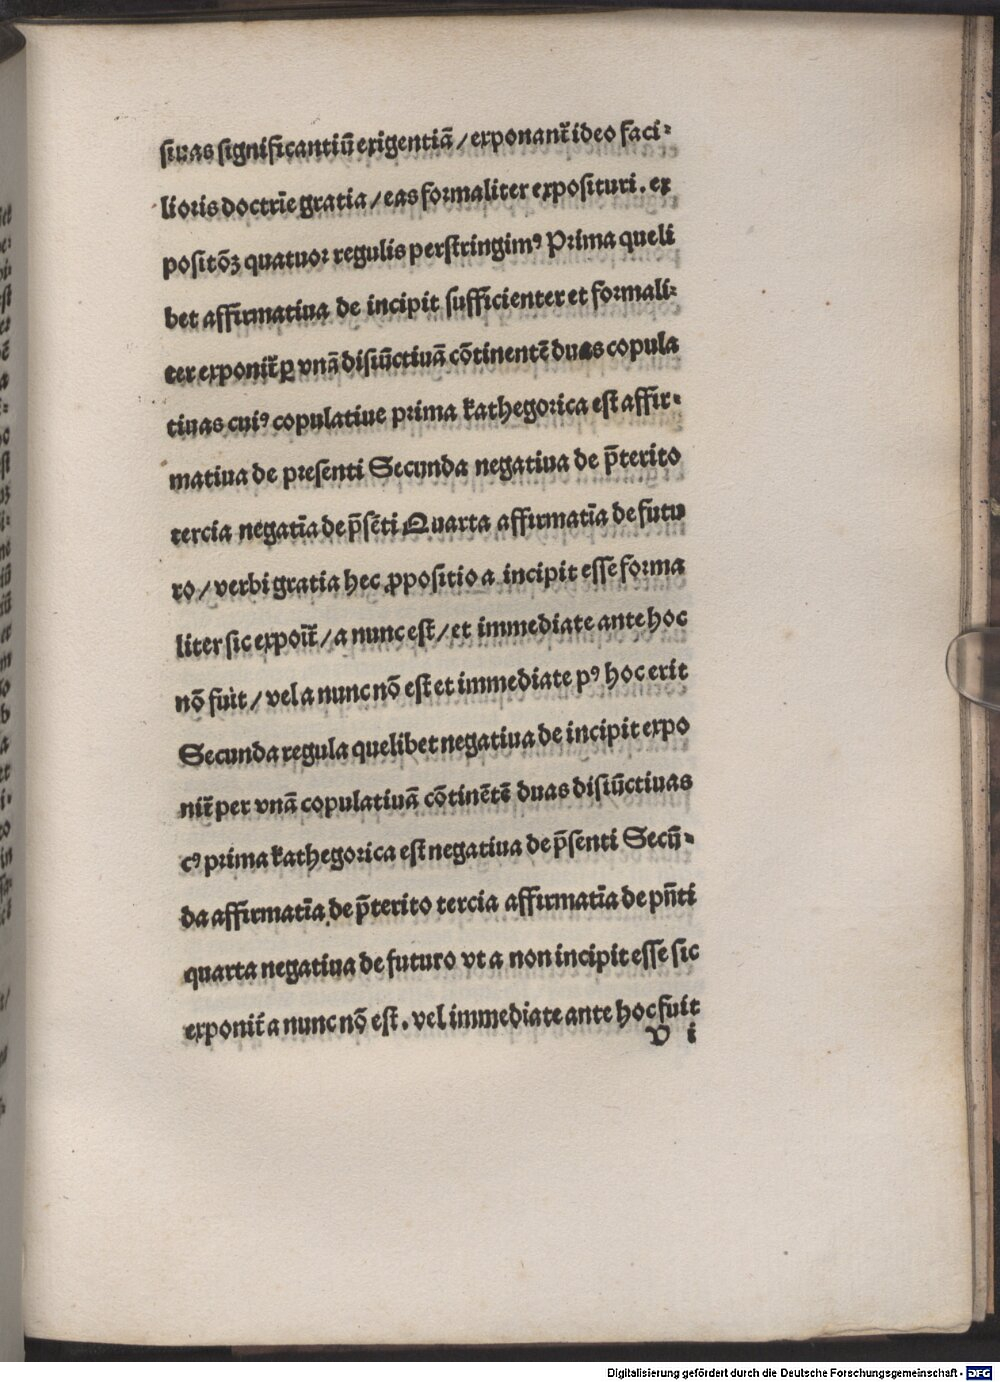 siuas significantiū exigentiā / exponant̄ ideo faci⸗
lioris doctrīe gratia / eas formaliter exposituri. ex
positōꝫ quatuor regulis perstringimꝰ Prima queli
bet affirmatiua de incipit sufficienter et formali⸗
ter exponit̄ ꝑ vnā disiūctiuā cōtinentē duas copula
tiuas cuiꝰ copulatiue prima kathegorica est affir⸗
matiua de presenti Secunda negatiua de p̄terito
tercia negatīa de p̄sēti Quarta affirmatīa de futu
ro / verbi gratia hec ꝓpositio a incipit esse forma
liter sic expoīt̄ / a nunc est / et immediate ante hoc
nō fuit / vel a nunc nō est et immediate pꝰ hoc erit
Secunda regula quelibet negatiua de incipit expo
nit̄ per vnā copulatiuā cōtinētē duas disiūctiuas
cꝰ prima kathegorica est negatiua de p̄senti Secū⸗
da affirmatīa de p̄terito tercia affirmatīa de pn̄ti
quarta negatiua de futuro vt a non incipit esse sic
exponit̄ a nunc nō est. vel immediate ante hoc fuit
v i
Digitalisierung gefördert durch die Deutsche Forschungsgemeinschaft - DFG